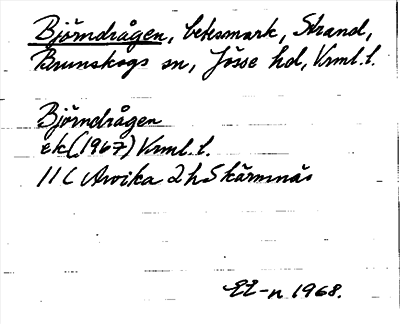 Björndrågen, betesmark, Strand,
Brunskogs sn, Jösse hd, Vrml. l.
Björndrågen
ek (1967) Vrml. l.
11 C Arvika 2 h Skärmnäs
EE-n 1968.